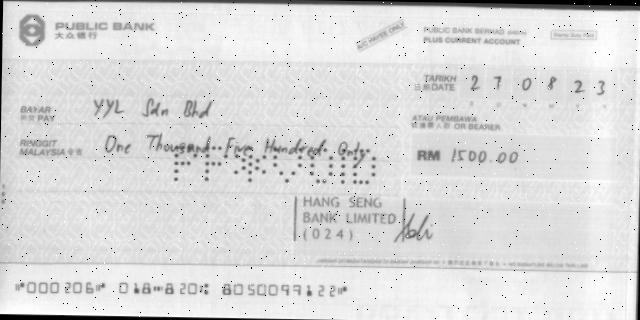 PUBLIC BANK
大众银行
A/C PAYEE ONLY
PUBLIC BANK BERHAD
PLUS CURRENT ACCOUNT
TARIKH
日期 DATE 270823
BAYAR
PAY YYL Sdn Bhd
ATAU PEMBAWA
OR BEARER
RINGGIT
MALAYSIA One Thousand Five Hundred Only
RM 1500.00
HANG SENG
BANK LIMITED
(024)
⑈000206⑈ 018⑉820⑆ 8050099122⑈